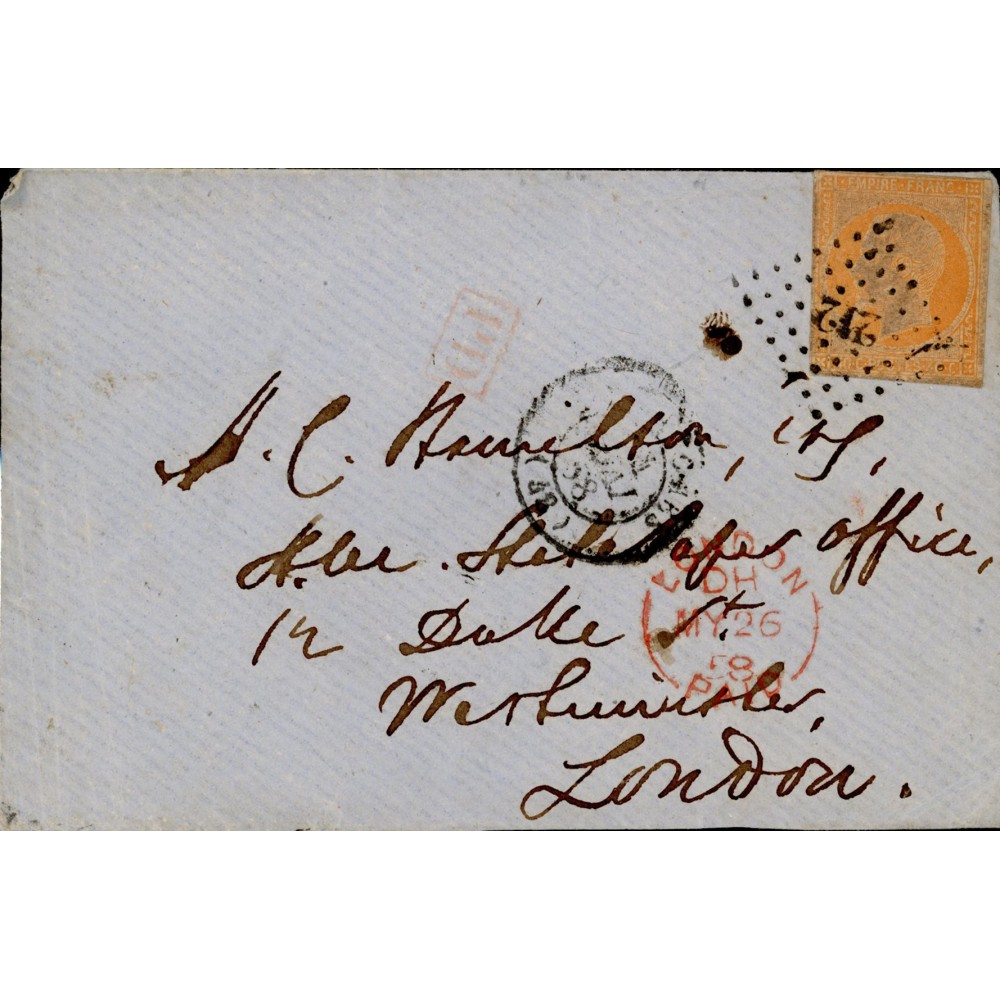 EMPIRE FRANC
PD
A. C. Hamilton, Esq,
State Paper Office,
12 Duke St.
Westminster,
London.
LONDON
DH
MY 26
58
PAID